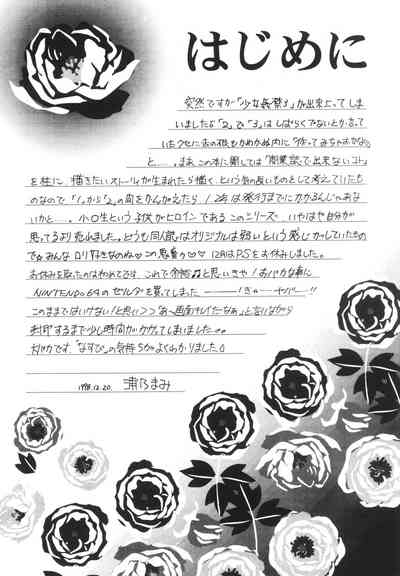 はじめに
突然ですが「少女長替3」が出来上ってしま
いましたよ「2」で「3」はしばらくでないとか言って
いたクセに
と―。まあこの本に関しては「商業誌で出来ないコト」
を柱に、描きたいストーリィが生まれたら描く、という気の長いものとして考えていたも
のなので「1」から「2」の間をかんがえたら1年は発行までにかかるんじゃあな
いかと―。小○生という子供がヒロインであるこのシリーズ、いやはや自分が
思ってるより売れました。どうも同人誌はオリジナルは弱いという感じがしていたもの
で☆みんなロリ好きなのね♡この愚者め♡♡ 12月はP.Sをお休みしました。
お休みを取ったのは初めてでは、これで余裕♫と思いきや！おバカな事に
NINTENDO64のゼルダを買ってしまった――！きゃーヤバ――!!
このままではいけない！と思い＞＞「あ～画面がキレイだなぁ」と言いながら
利用するまで少し時間がかかってしまいました。
「なすび」の気持ちがよくわかりました。
1998.12.20. 浦乃まみ